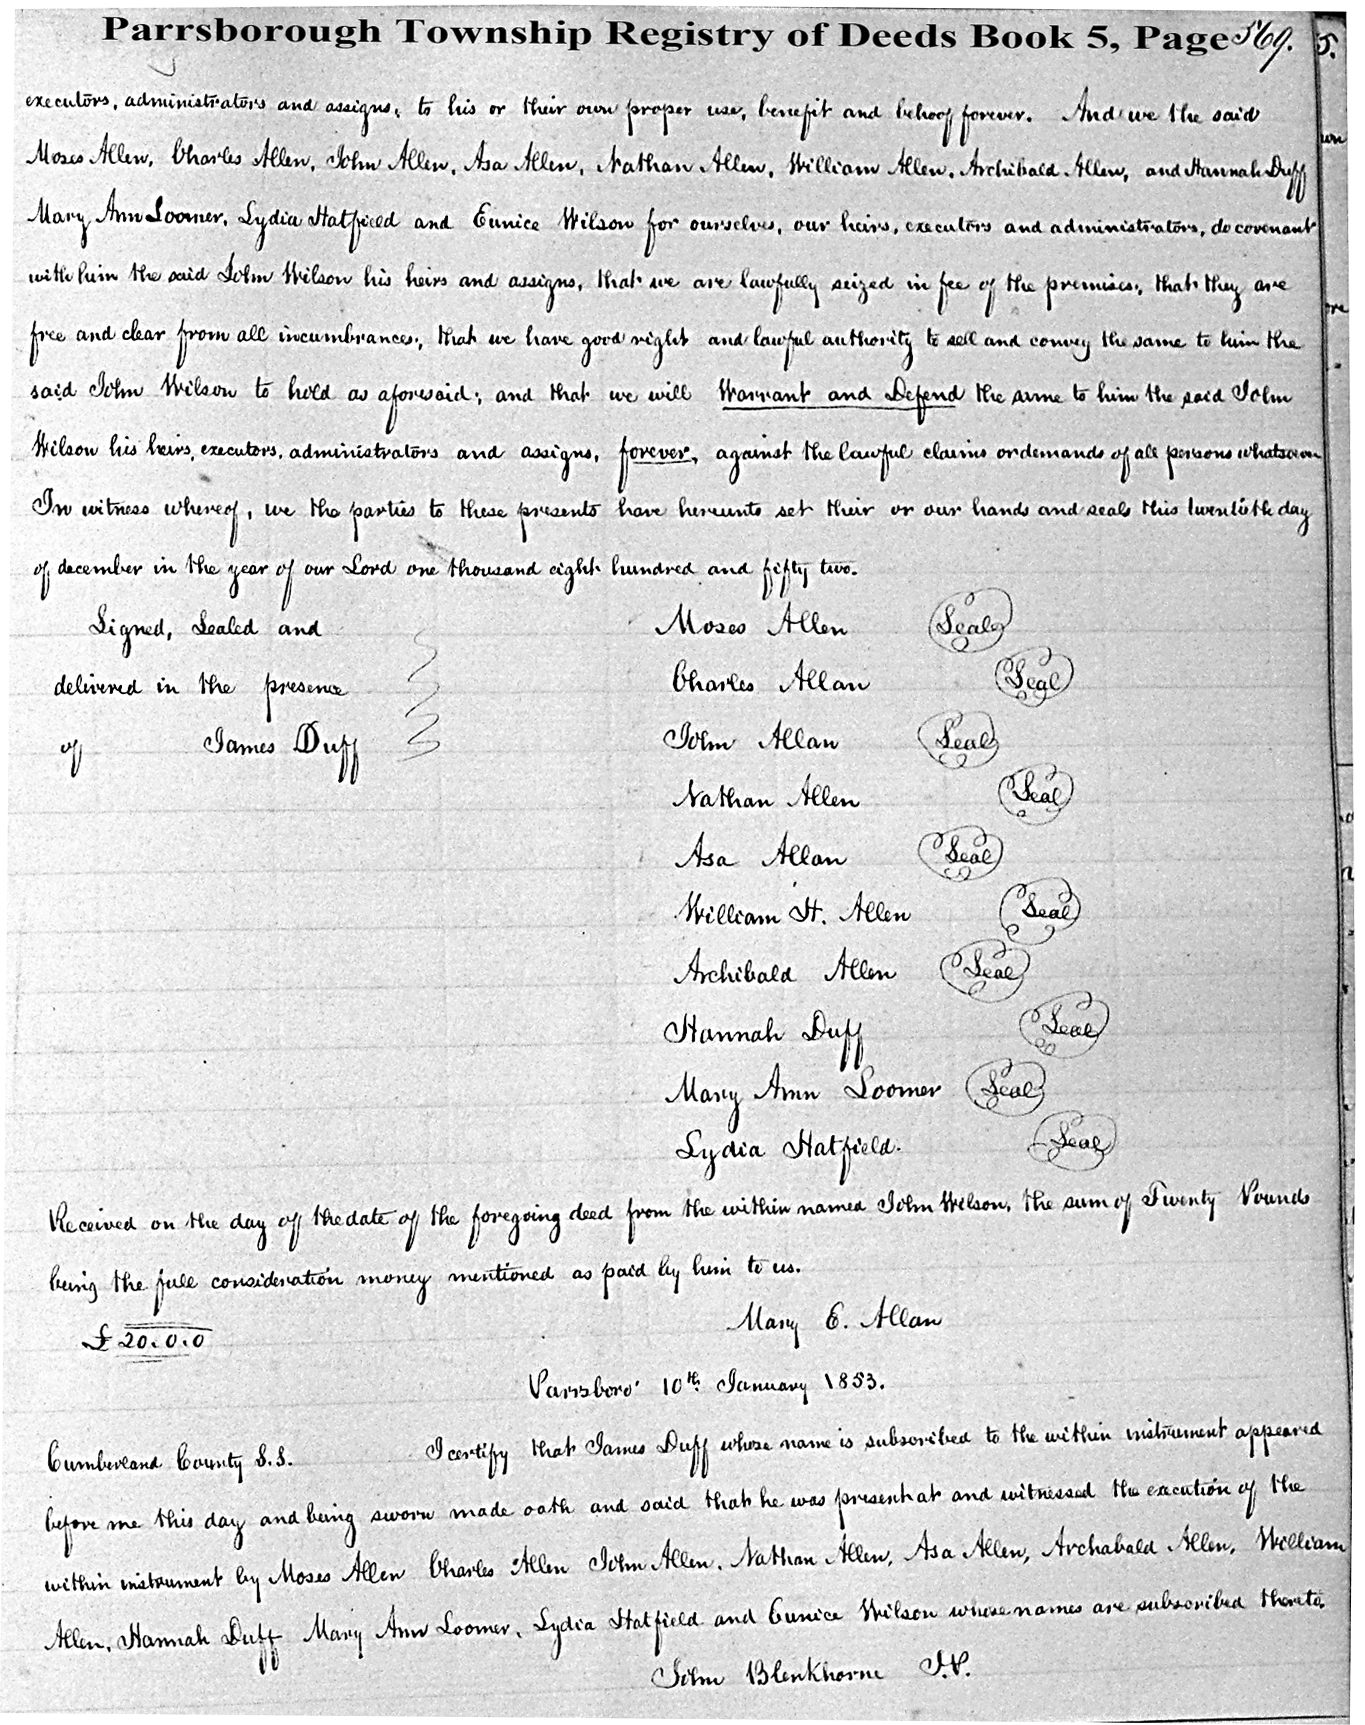 Parrsborough Township Registry of Deeds Book 5, Page 569. 5.
executors, administrators and assigns, to his or their own proper use, benefit and behoof forever. And we the said
Moses Allen, Charles Allen, John Allen, Asa Allen, Nathan Allen, William Allen, Archibald Allen, and Hannah Duff
Mary Ann Loomer, Lydia Hatfield and Eunice Wilson for ourselves, our heirs, executors and administrators, do covenant
with him the said John Wilson his heirs and assigns, that we are lawfully seized in fee of the premises, that they are
free and clear from all incumbrances, that we have good right and lawful authority to sell and convey the same to him the
said John Wilson to hold as aforesaid; and that we will Warrant and Defend the same to him the said John
Wilson his heirs, executors, administrators and assigns, forever, against the lawful claims or demands of all persons whatsoever
In witness whereof, we the parties to these presents have hereunto set their or our hands and seals this twentieth day
of december in the year of our Lord one thousand eight hundred and fifty two.
Signed, Sealed and
delivered in the presence
of James Duff
Moses Allen Seal
Charles Allan Seal
John Allan Seal
Nathan Allen Seal
Asa Allan Seal
William H. Allen Seal
Archibald Allen Seal
Hannah Duff Seal
Mary Ann Loomer Seal
Lydia Hatfield. Seal
Received on the day of the date of the foregoing deed from the within named John Wilson, the sum of Twenty Pounds
being the full consideration money mentioned as paid by him to us.
£20.0.0
Mary E. Allan
Parrsboro' 10th January 1853.
Cumberland County S.S. I certify that James Duff whose name is subscribed to the within instrument appeared
before me this day and being sworn made oath and said that he was present at and witnessed the execution of the
within instrument by Moses Allen Charles Allen John Allen, Nathan Allen, Asa Allen, Archabald Allen, William
Allen, Hannah Duff Mary Ann Loomer, Lydia Hatfield and Eunice Wilson whose names are subscribed thereto,
John Blenkhorne J.P.